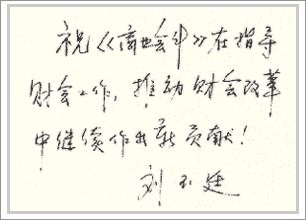 祝《商业会计》在指导
财会工作，推动财会改革
中继续作出新贡献！
刘玉廷